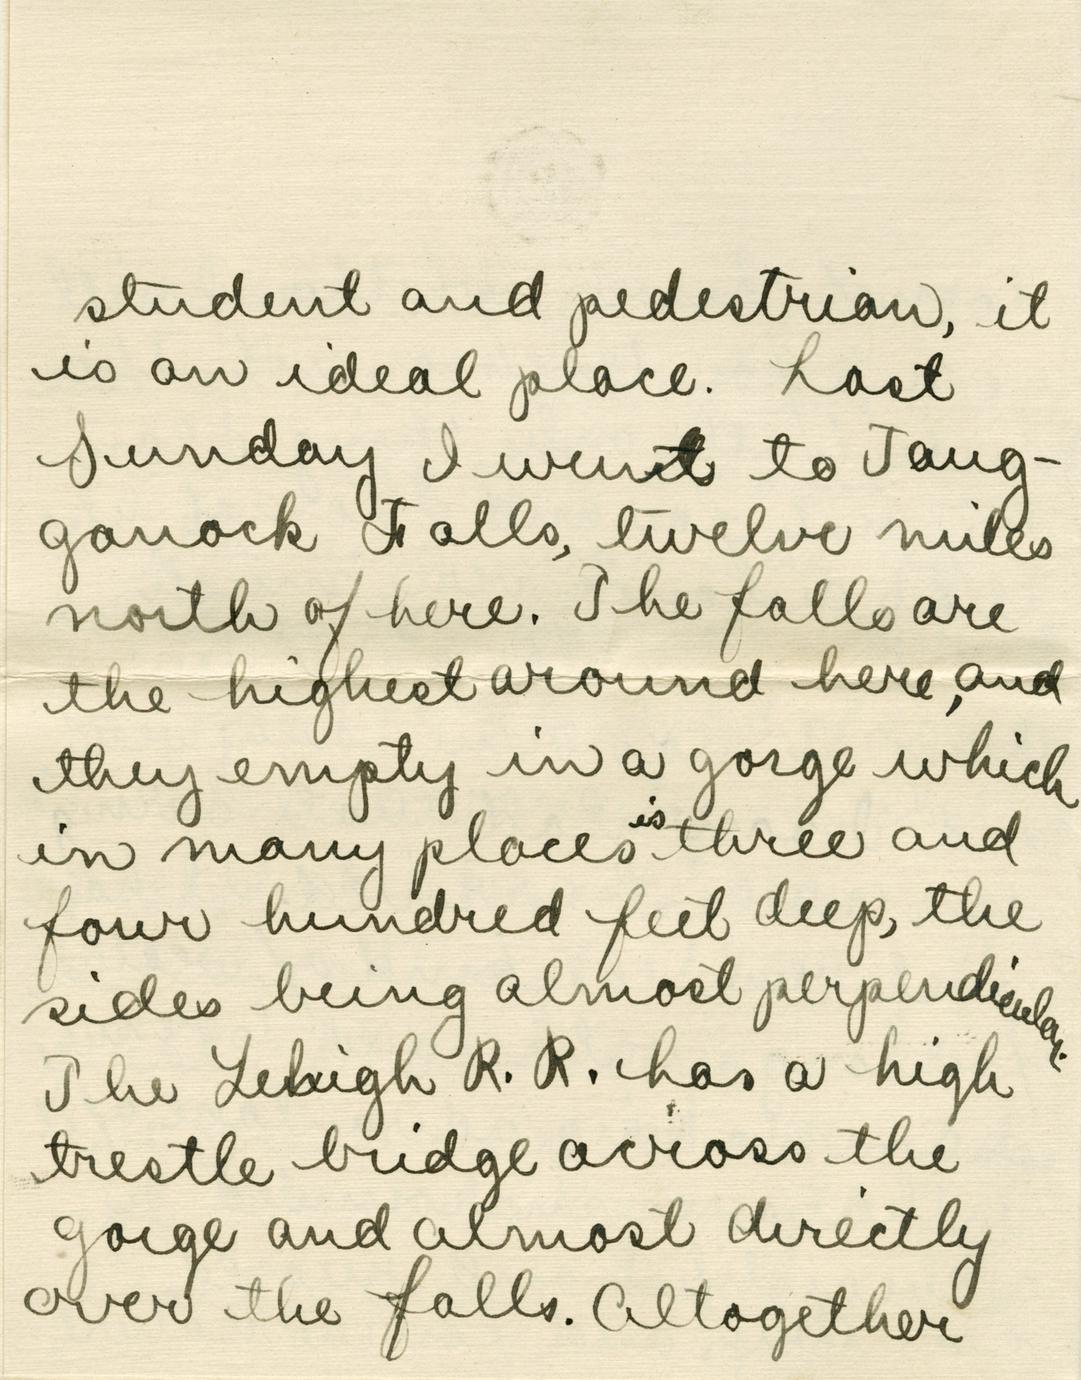 student and pedestrian, it
is an ideal place. Last
Sunday I went to Taug-
ganock Falls, twelve miles
north of here. The falls are
the highest around here, and
they empty in a gorge which
in many places is three and
four hundred feet deep, the
sides being almost perpendicular.
The Lehigh R. R. has a high
trestle bridge across the
gorge and almost directly
over the falls. Altogether